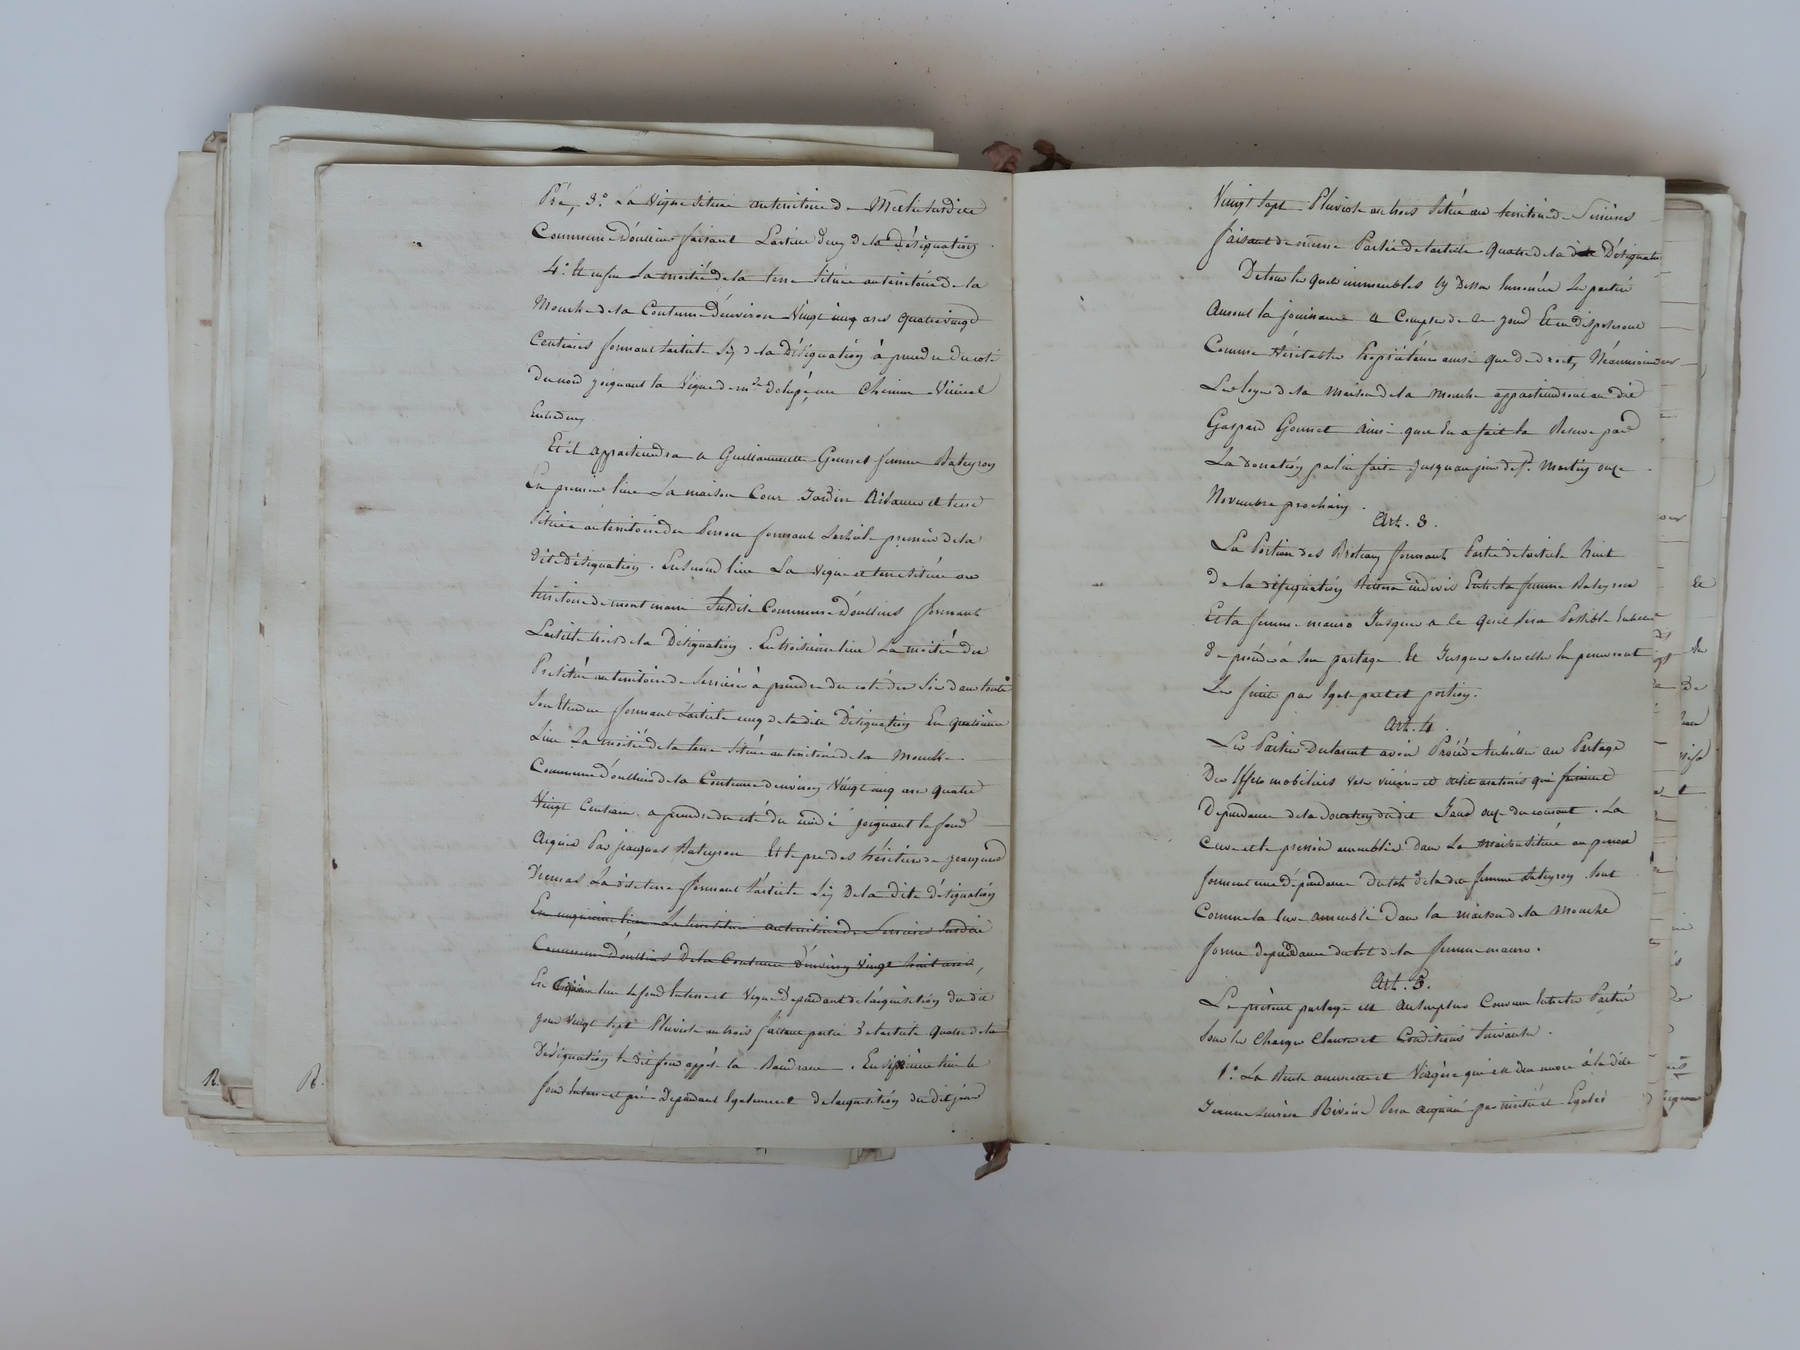 Pré, 3.° La vigne située au territoire de Merlu susdite
Commune d'oullins faisant L'article deux de la désignation
4.° Et enfin la moitié de la terre située au territoire de la
Mouche de la Contenue d'environ Vingt cinq ares quatrevingt
Centiares formant l'article six de la Désignation à prendre du coté
du nord joignant la vigne de chemin vicinal
Entredeux
Et il appartiendra a Guillaumette Gonnet femme Bateyron
En premier lieu La maison Cour Jardin Aisances et terre
Située au territoire du Perron formant Larticle premier de la
dite Désignation. En second lieu La vigne et terre située au
territoire de montmain Susdite Commune d'oullins formant
Larticle trois de la Désignation. En troisième lieu La moitié du
Pré situé au territoire de Serrières à prendre du coté du Soir dans toute
Son Etendue formant L'article cinq de la dite Désignation En quatrième
Lieu La moitié de la terre située au territoire de la Mouche
Commune d'oullins de la Contenue d'environ Vingt cinq ares quatre
Vingt Centiares a prendre du coté du midi joignant le fond
Acquis Par jacques Bateyron Et le pré des héritiers de
Dumas La dite terre formant L'article Six De la dite désignation
En cinquième lieu La terre située au territoire de Serrières Susdite
Commune d'oullins De la Contenue d'environ vingt huit ares,
En lieu le fond En terre et vigne Dependant de l'acquisition du dit
jour vingt sept Pluviose an trois faisant partie de l'article quatre de la
Désignation le dit fond appelé la . En sixième lieu le
fond En terre et pré Dependant Egalement de l'acquisition du dit jour
Vingt sept Pluviose an trois Situé au territoire de Serrières
faisant de même Partie de l'article quatre de la dite Désignation
De tous les quels immeubles cy Dessus Enoncés Les parties
Auront la jouissance a Compter de ce jour Et en disposeront
Comme Véritables Propriétaires ainsi que de droit, Néanmoins
Les loyers de la maison de la mouche appartiendront au dit
Gaspard Gonnet ainsi que En a fait la Reserve par
La donation par lui faite jusqu'au jour de St. Martin onze
Novembre prochain.
Art. 3.
La Portion des Broteaux formant Partie de l'article huit
de la désignation Restera indivis Entre la femme Bateyron
Et la femme mauro Jusques a ce qu'il sera Possible Entre
de procéder à Son partage Et Jusques alors elles en percevront
Les fruits par Egale part et portion.
Art. 4.
Les Parties Declarent avoir Procédé Entr'elles au Partage
Des Effets mobiliers et aratoires qui faisaient
Dépendance de la Donation du dit Jour onze du courant. La
Cuve et le pressoir immeublés dans La maison située au perron
forment une dépendance du lot de la dite femme Bateyron tout
Comme la cuve ameublée Dans la maison de la mouche
forme dependance du lot de la femme mauro.
Art. 5.
Le présent partage est au surplus Convenu Entre les Parties
Sous les Charges Clauses et Conditions Suivantes.
1.° La Rente annuelle et Viagère qui est Due encore à la dite
Jeanne Rivière Sera acquittée par moitié et Egales
R.
R.